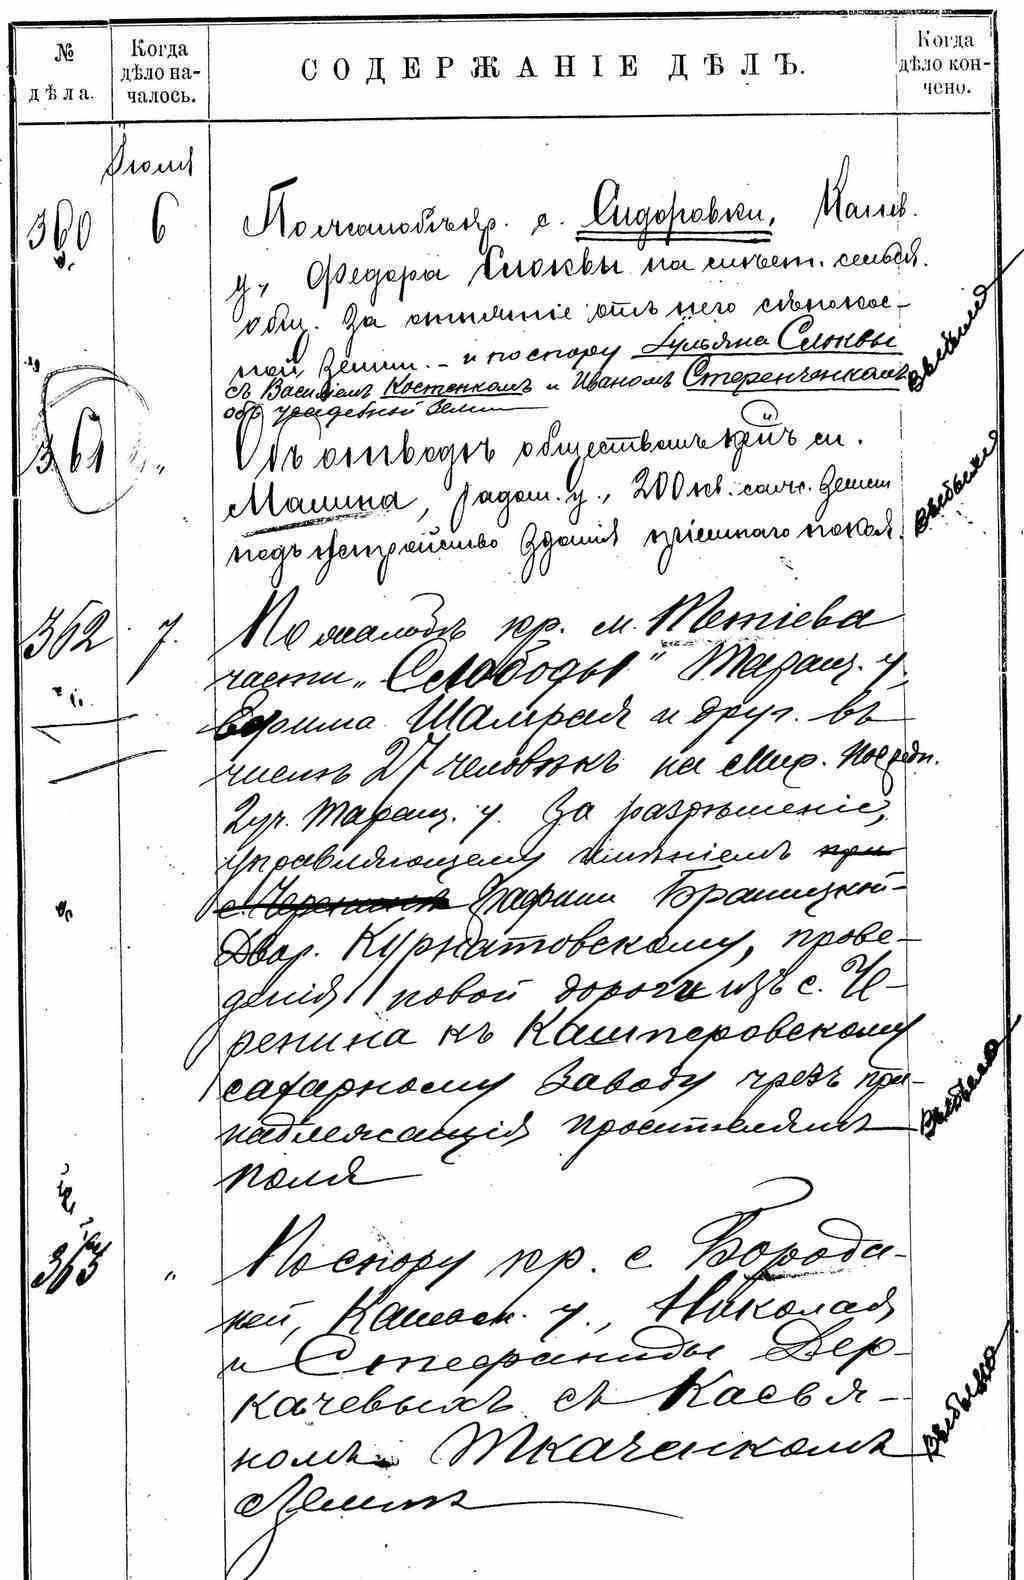 № дѣла.
Когда дѣло началось.
СОДЕРЖАНІЕ ДѢЛЪ.
Когда дѣло кончено.
Іюля
360
6
По жалобѣ кр. с. Сидоровки, Канев.
у., Федора Слюквы на сельск.
общ. за отнятіе отъ него сѣнокос-
ной земли. - и по спору Ульяна Слюквы
съ Василіемъ Костенкомъ и Иваномъ Стеренченкомъ
объ усадебной земли
выбыло
361
"
Объ отводѣ обществомъ кр. м.
Малина, Радом. у., 200 кв. саж. земли
подъ устройство зданія пріемнаго покоя.
выбыло
362
7.
По жалобѣ кр. м. Тетіева
части „Слободы" Таращ. у.
Ефима Шамрая и друг. въ
числѣ 27 человѣкъ на Мир. Посредн.
2 уч. Таращ. у. за разрѣшеніе,
управляющему имѣніемъ при
с. Черепинѣ Графини Браницкой-
Двор. Курнатовскому, прове-
денія новой дороги изъ с. Че-
репина къ Кашперовскому
сахарному заводу чрезъ при-
надлежащія просителямъ
поля
выбыло
363
"
По спору кр. с. Борода-
ней, Каневск. у., Николая
и Стефаниды Дер-
качевыхъ съ Касья-
номъ Ткаченкомъ
о землѣ
выбыло